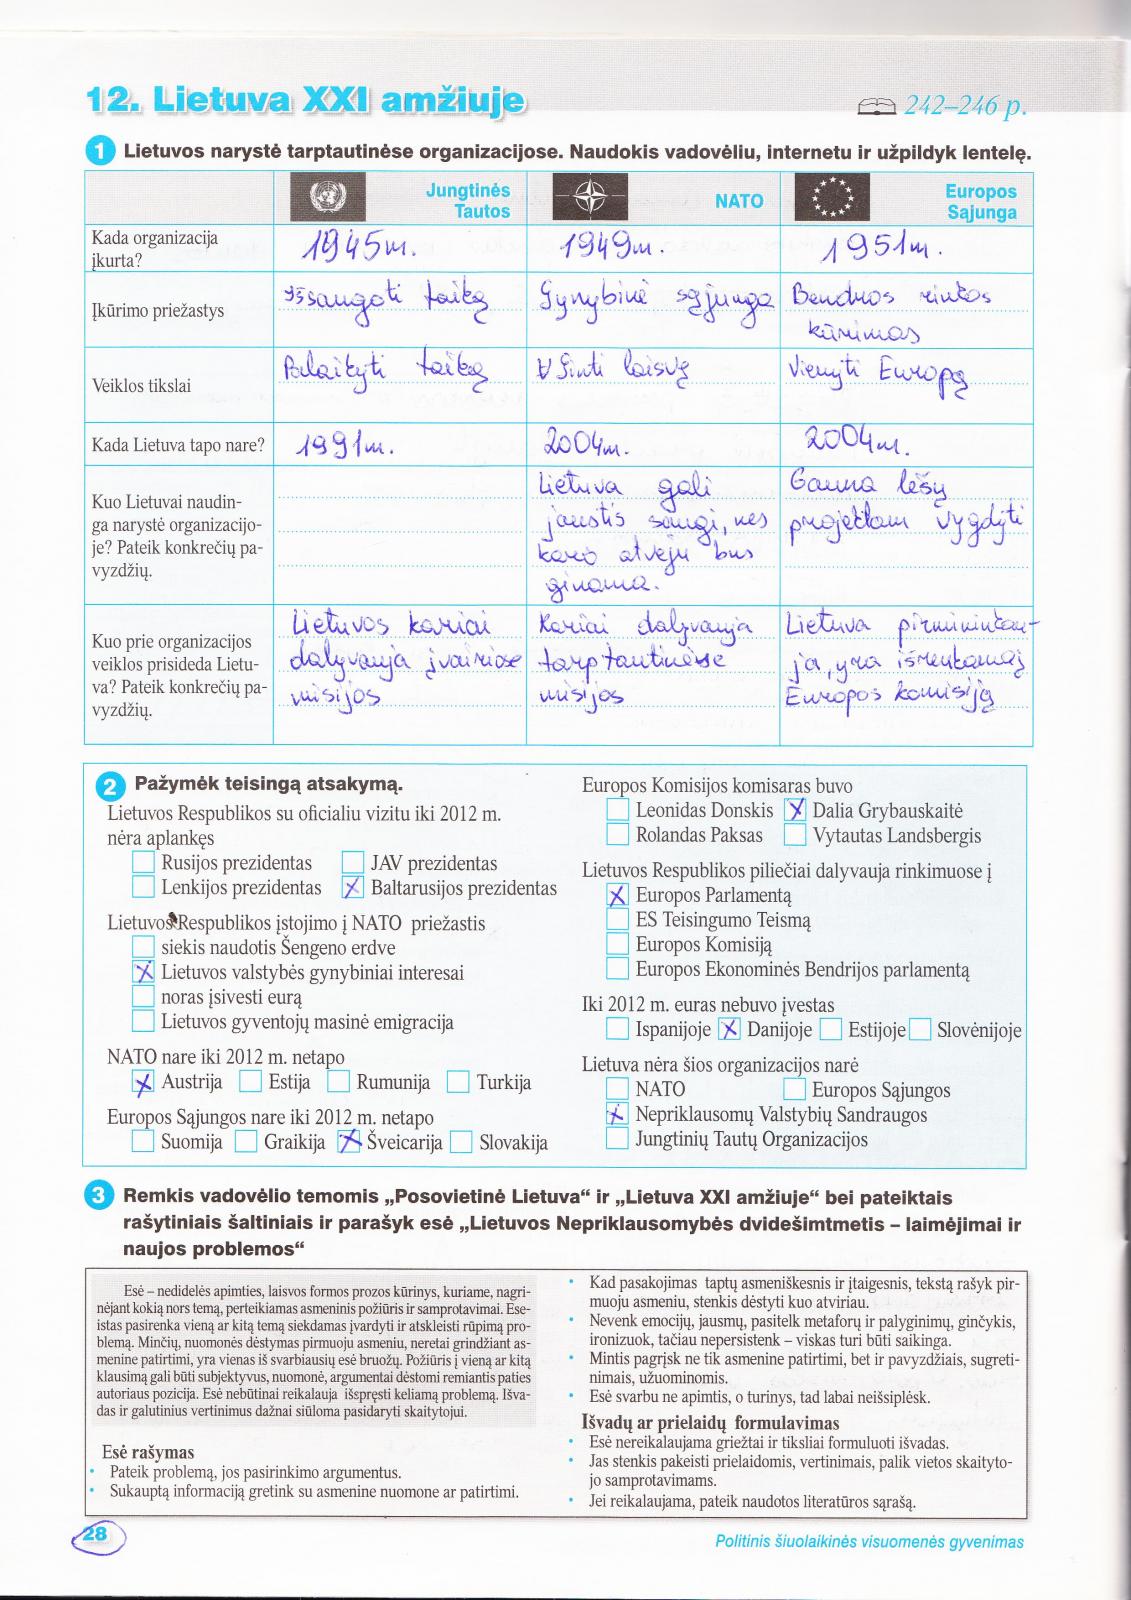 12. Lietuva XXI amžiuje
242–246 p.
1 Lietuvos narystė tarptautinėse organizacijose. Naudokis vadovėliu, internetu ir užpildyk lentelę.
Jungtinės
Tautos
NATO
Europos
Sąjunga
Kada organizacija
įkurta?
1945m.
1949m.
1951m.
Įkūrimo priežastys
Išsaugoti taiką
Gynybinė sąjunga
Bendros rinkos
kūrimas
Veiklos tikslai
Palaikyti taiką
Užtinti laisvę
Vienyti Europą
Kada Lietuva tapo nare?
1991m.
2004m.
2004m.
Kuo Lietuvai naudin-
ga narystė organizacijo-
je? Pateik konkrečių pa-
vyzdžių.
Lietuva gali
jaustis saugi, nes
karo atveju bus
ginama.
Gauna lėšų
projektam vygdyti
Kuo prie organizacijos
veiklos prisideda Lietu-
va? Pateik konkrečių pa-
vyzdžių.
Lietuvos kariai
dalyvauja įvairiose
misijos
Kariai dalyvauja
tarptautinėse
misijos
Lietuva pirmininkau-
ja, yra išrenkamaj
Europos komisiją
2 Pažymėk teisingą atsakymą.
Lietuvos Respublikos su oficialiu vizitu iki 2012 m.
nėra aplankęs
Rusijos prezidentas JAV prezidentas
Lenkijos prezidentas Baltarusijos prezidentas
Lietuvos Respublikos įstojimo į NATO priežastis
siekis naudotis Šengeno erdve
Lietuvos valstybės gynybiniai interesai
noras įsivesti eurą
Lietuvos gyventojų masinė emigracija
NATO nare iki 2012 m. netapo
Austrija Estija Rumunija Turkija
Europos Sąjungos nare iki 2012 m. netapo
Suomija Graikija Šveicarija Slovakija
Europos Komisijos komisaras buvo
Leonidas Donskis Dalia Grybauskaitė
Rolandas Paksas Vytautas Landsbergis
Lietuvos Respublikos piliečiai dalyvauja rinkimuose į
Europos Parlamentą
ES Teisingumo Teismą
Europos Komisiją
Europos Ekonominės Bendrijos parlamentą
Iki 2012 m. euras nebuvo įvestas
Ispanijoje Danijoje Estijoje Slovėnijoje
Lietuva nėra šios organizacijos narė
NATO Europos Sąjungos
Nepriklausomų Valstybių Sandraugos
Jungtinių Tautų Organizacijos
3 Remkis vadovėlio temomis „Posovietinė Lietuva“ ir „Lietuva XXI amžiuje“ bei pateiktais
rašytiniais šaltiniais ir parašyk esė „Lietuvos Nepriklausomybės dvidešimtmetis – laimėjimai ir
naujos problemos“
Esė – nedidelės apimties, laisvos formos prozos kūrinys, kuriame, nagri-
nėjant kokią nors temą, perteikiamas asmeninis požiūris ir samprotavimai. Ese-
istas pasirenka vieną ar kitą temą siekdamas įvardyti ir atskleisti rūpimą pro-
blemą. Minčių, nuomonės dėstymas pirmuoju asmeniu, neretai grindžiant as-
menine patirtimi, yra vienas iš svarbiausių esė bruožų. Požiūris į vieną ar kitą
klausimą gali būti subjektyvus, nuomonė, argumentai dėstomi remiantis paties
autoriaus pozicija. Esė nebūtinai reikalauja išspręsti keliamą problemą. Išva-
das ir galutinius vertinimus dažnai siūloma pasidaryti skaitytojui.
Esė rašymas
• Pateik problemą, jos pasirinkimo argumentus.
• Sukauptą informaciją gretink su asmenine nuomone ar patirtimi.
• Kad pasakojimas taptų asmeniškesnis ir įtaigesnis, tekstą rašyk pir-
muoju asmeniu, stenkis dėstyti kuo atviriau.
• Nevenk emocijų, jausmų, pasitelk metaforų ir palyginimų, ginčykis,
ironizuok, tačiau nepersistenk – viskas turi būti saikinga.
• Mintis pagrįsk ne tik asmenine patirtimi, bet ir pavyzdžiais, sugreti-
nimais, užuominomis.
• Esė svarbu ne apimtis, o turinys, tad labai neišsiplėsk.
Išvadų ar prielaidų formulavimas
• Esė nereikalaujama griežtai ir tiksliai formuluoti išvadas.
• Jas stenkis pakeisti prielaidomis, vertinimais, palik vietos skaityto-
jo samprotavimams.
• Jei reikalaujama, pateik naudotos literatūros sąrašą.
28
Politinis šiuolaikinės visuomenės gyvenimas